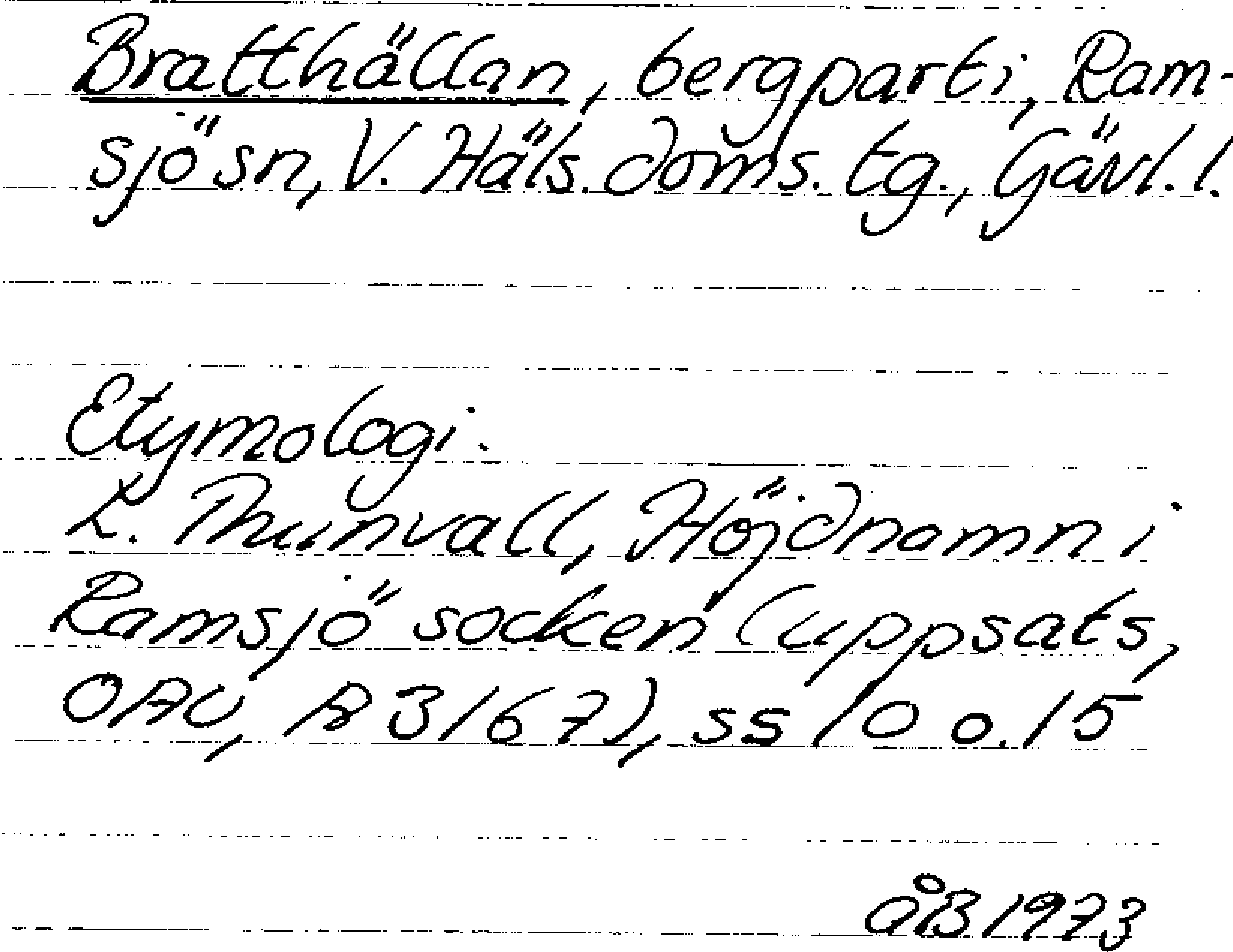 Bratthällan, bergparti, Ram-
sjö sn, V. Häls. doms. tg., Gävl. l.
Etymologi.
L. Thunvall, Höjdnamn i
Ramsjö socken (uppsats,
OAU, A 3167), ss 10 o. 15
ÅB 1973